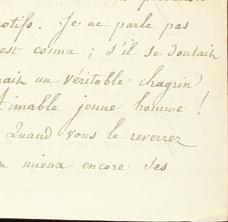 otifs. Je ne parle pas
est connu ; s'il se doutait
rait un véritable chagrin
timable jeune homme !
Quand vous le reverrez
mieux encore ses